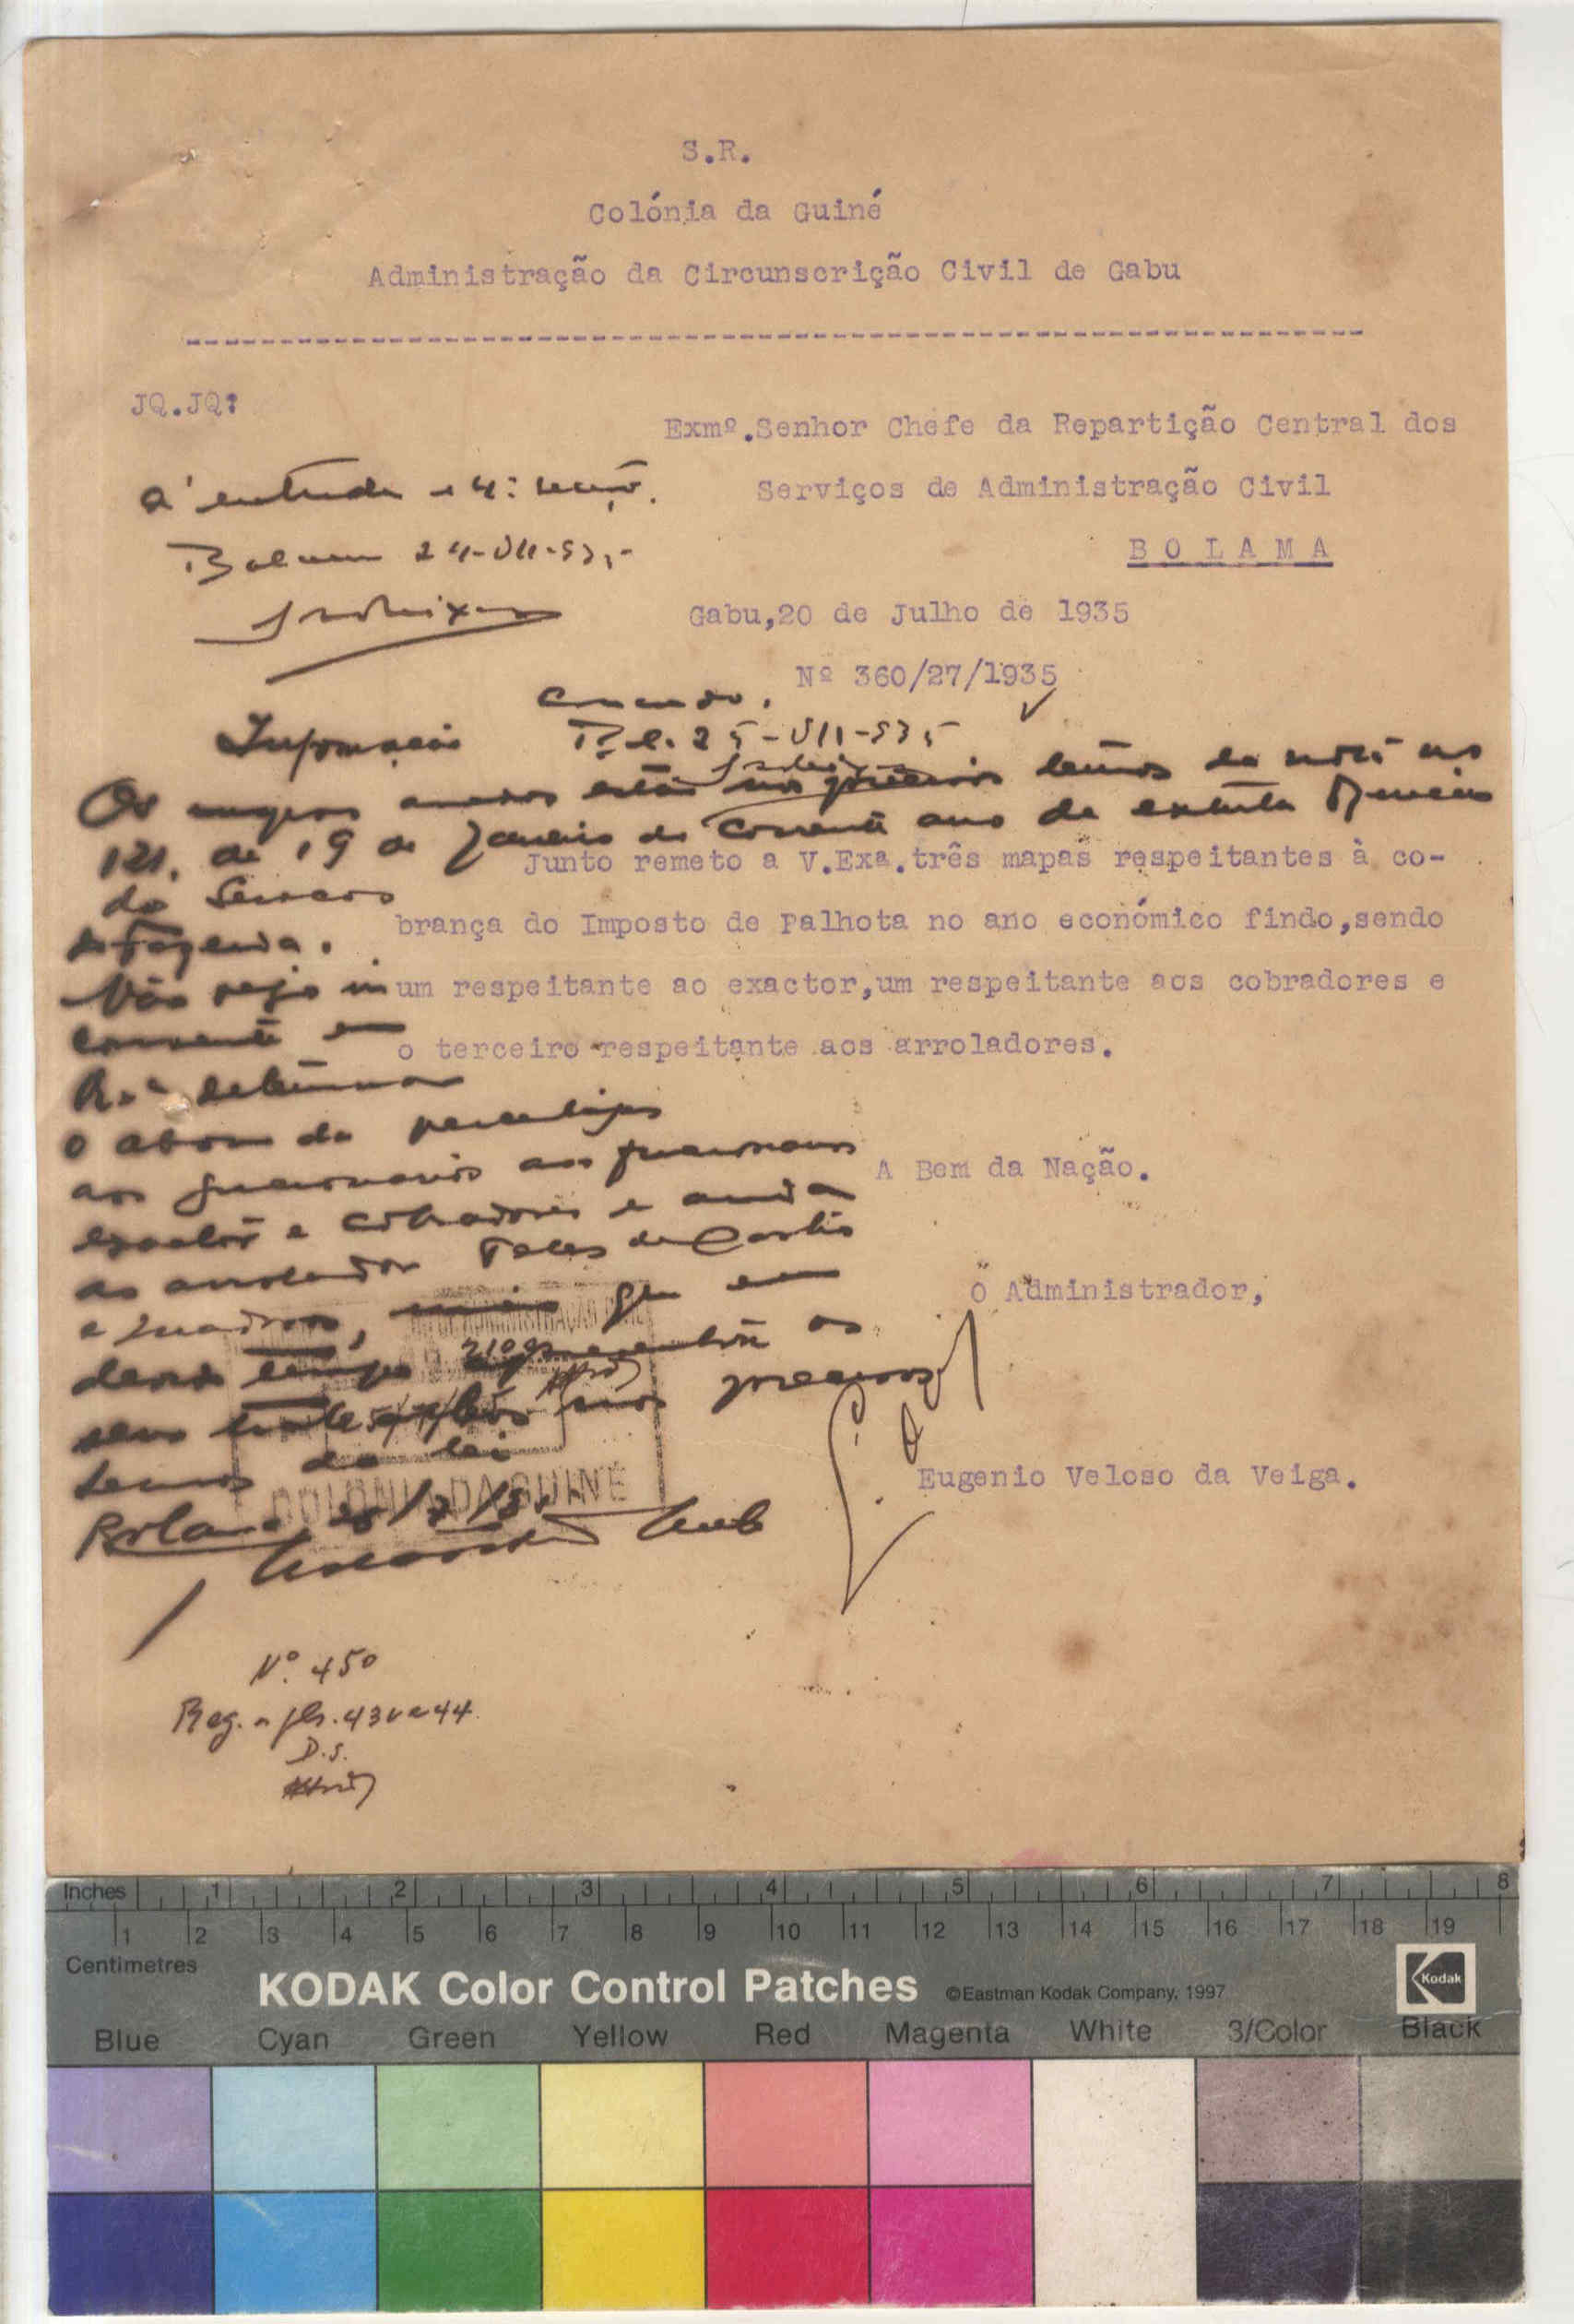 S.R.
Colónia da Guiné
Administração da Circunscrição Civil de Gabu
JQ.JQ:
Exmº.Senhor Chefe da Repartição Central dos
Serviços de Administração Civil
B O L A M A
Gabu,20 de Julho de 1935
Nº 360/27/1935
Á entrada e 4ª secção.
Bolama 24-VII-935
Informação
25-VII-935
Os mapas anexos estão nos precisos termos da nota nº
121, de 19 de Janeiro do corrente ano da extinta
Junto remeto a V.Exa.três mapas respeitantes à co-
de Serviços
brança do Imposto de Palhota no ano económico findo,sendo
de Fazenda.
Não vejo in
um respeitante ao exactor,um respeitante aos cobradores e
conveniente em
o terceiro respeitante aos arroladores.
determinar
o abono da percentagem
aos funcionarios aos funcionarios
A Bem da Nação.
exactor e cobradores e ainda
ao arrolador Teles de Castro
O Administrador,
e Quadros, que em
devido tempo apresentou os
seus trabalhos nos precisos
termos da lei
COLONIA DA GUINÉ
Eugenio Veloso da Veiga.
Bolama 25/7/35
Nº 450
Reg. a fls. 43v e 44
D.S.
Inches 1 2 3 4 5 6 7 8
1 2 3 4 5 6 7 8 9 10 11 12 13 14 15 16 17 18 19
Centimetres
KODAK Color Control Patches ©Eastman Kodak Company, 1997 Kodak
Blue Cyan Green Yellow Red Magenta White 3/Color Black